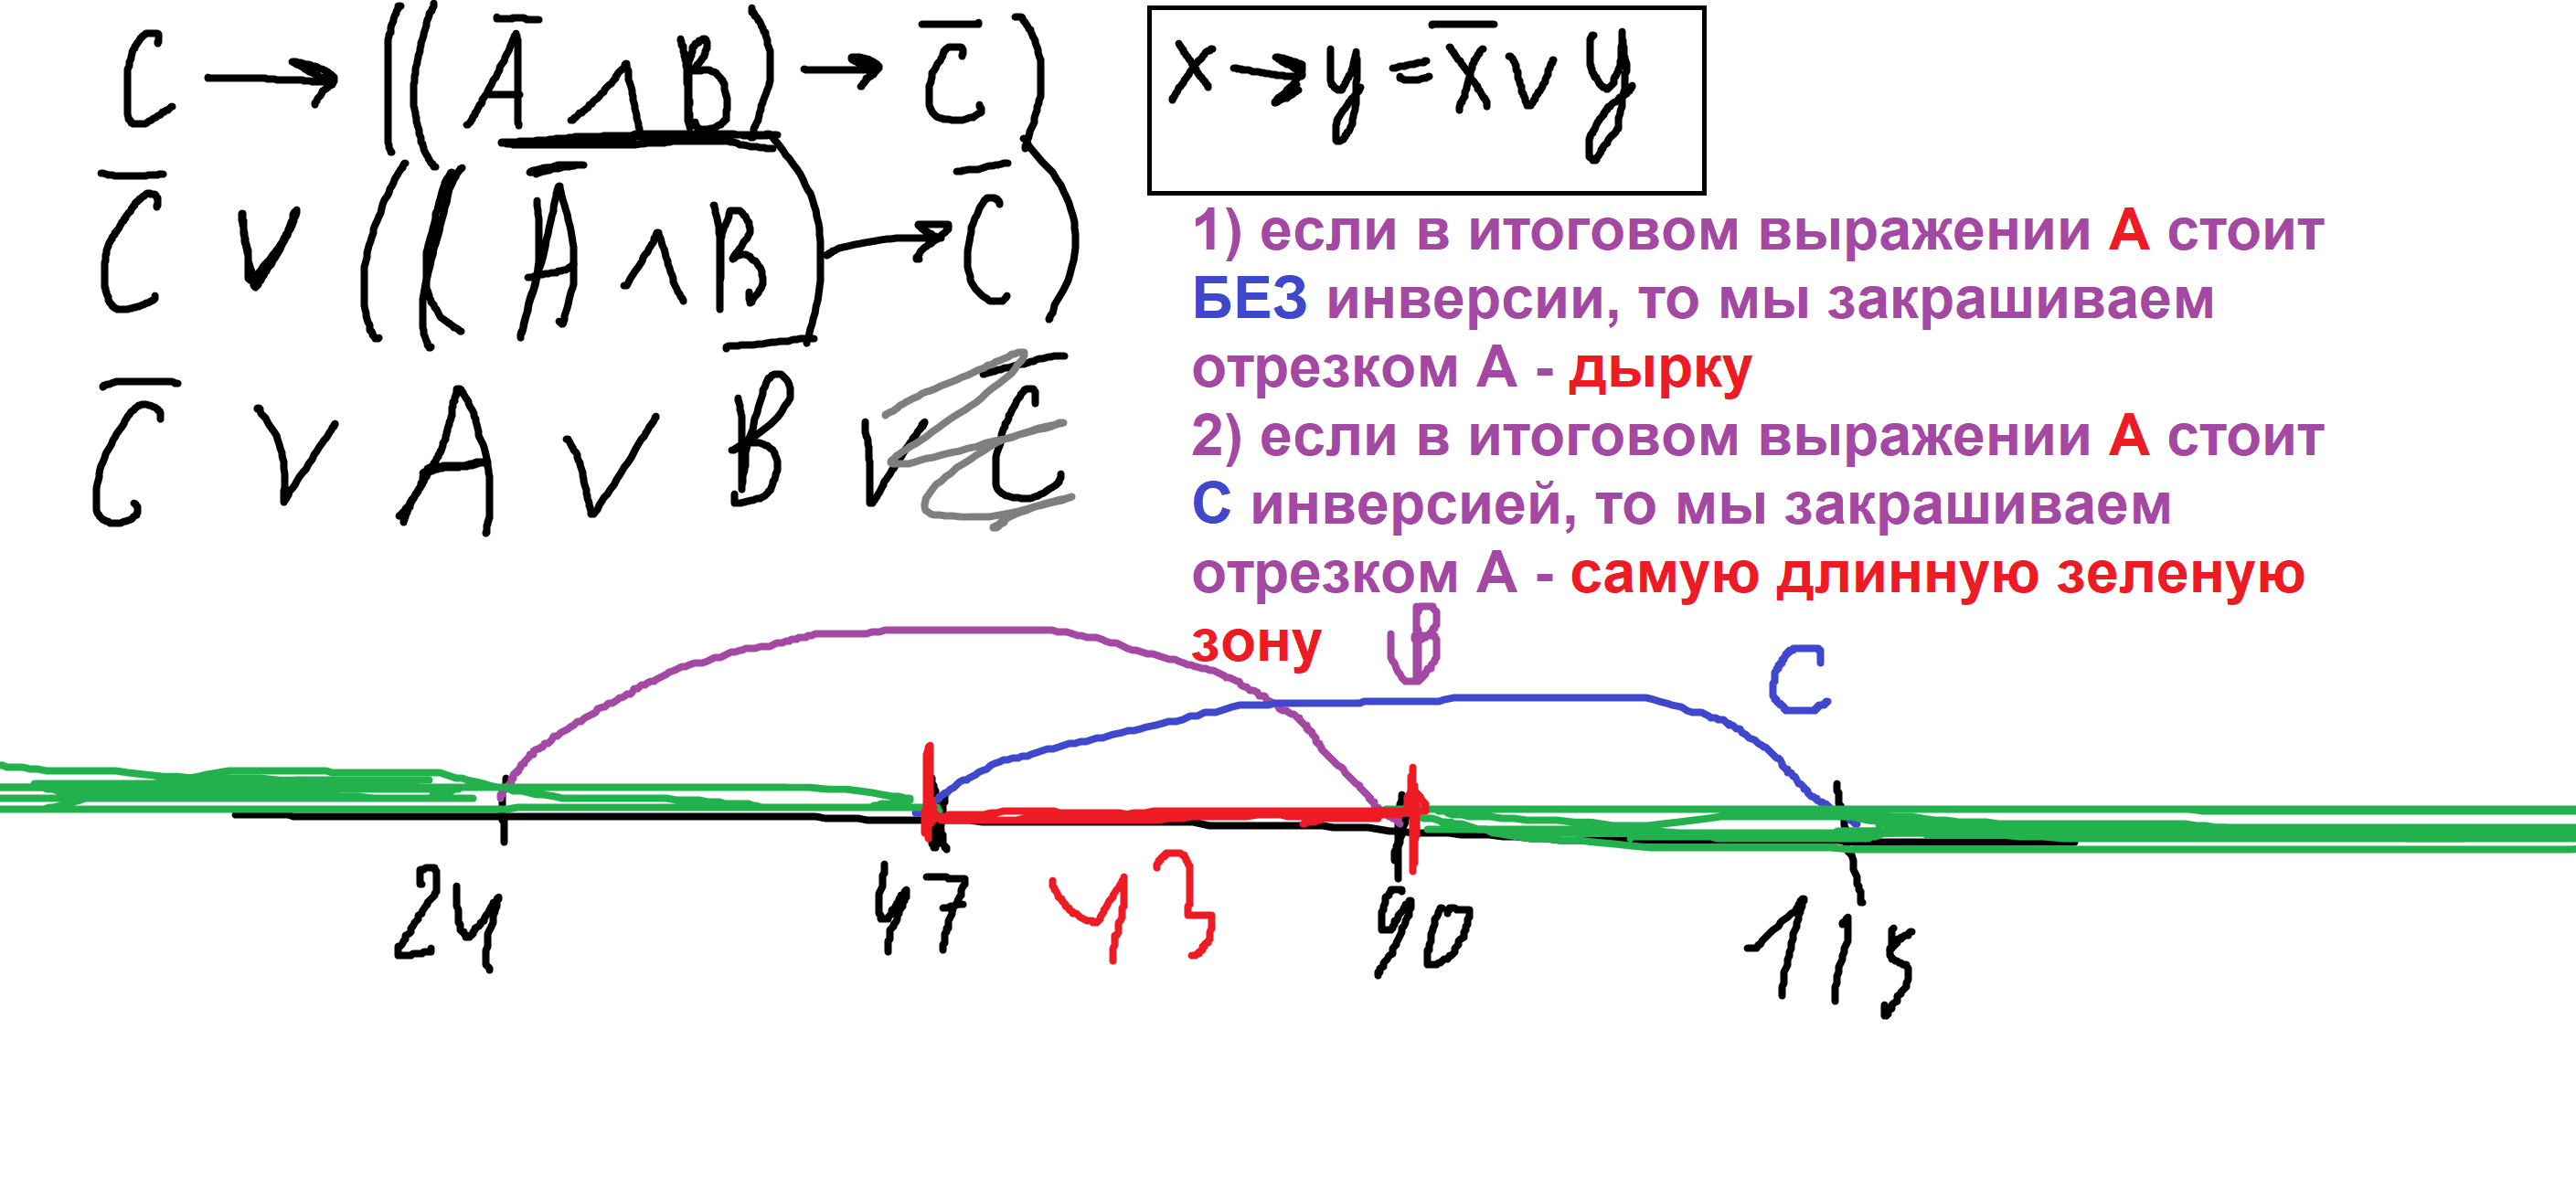 C → ((A̅ ∧ B) → C̅)
x → y = x̅ ∨ y
C̅ ∨ ((A̅ ∧ B) → C̅)
C̅ ∨ A ∨ B̅ ∨ C̅
1) если в итоговом выражении А стоит
БЕЗ инверсии, то мы закрашиваем
отрезком А - дырку
2) если в итоговом выражении А стоит
С инверсией, то мы закрашиваем
отрезком А - самую длинную зеленую
зону
B
C
24 47 43 90 115